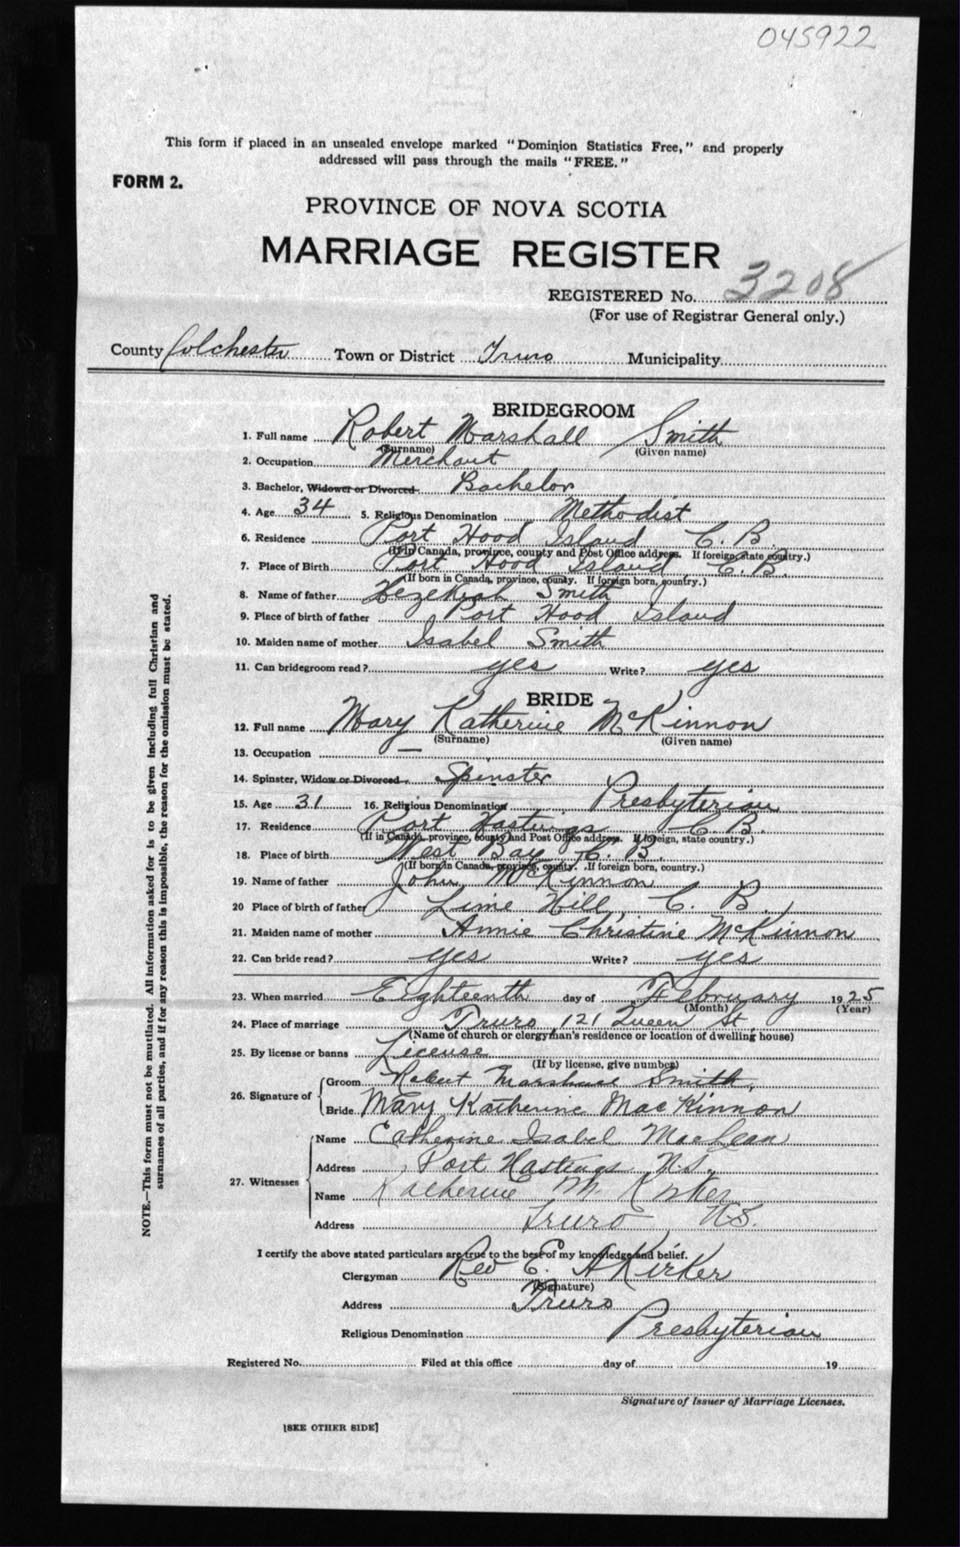 045922
This form if placed in an unsealed envelope marked "Dominion Statistics Free," and properly
addressed will pass through the mails "FREE."
FORM 2.
PROVINCE OF NOVA SCOTIA
MARRIAGE REGISTER
REGISTERED No. 3208
(For use of Registrar General only.)
County Colchester Town or District Truro Municipality
BRIDEGROOM
1. Full name Robert Marshall Smith
(Surname) (Given name)
2. Occupation Merchant
3. Bachelor, Widower or Divorced Bachelor
4. Age 34 5. Religious Denomination Methodist
6. Residence Port Hood Island C. B.
(If in Canada, province, county and Post Office address. If foreign, state country.)
7. Place of Birth Port Hood Island C. B.
(If born in Canada, province, county. If foreign born, country.)
8. Name of father Hezekiah Smith
9. Place of birth of father Port Hood Island
10. Maiden name of mother Isabel Smith
11. Can bridegroom read? yes Write? yes
BRIDE
12. Full name Mary Katherine McKinnon
(Surname) (Given name)
13. Occupation —
14. Spinster, Widow or Divorced Spinster
15. Age 31 16. Religious Denomination Presbyterian
17. Residence Port Hastings C. B.
(If in Canada, province, county and Post Office address. If foreign, state country.)
18. Place of birth West Bay C. B.
(If born in Canada, province, county. If foreign born, country.)
19. Name of father John McKinnon
20 Place of birth of father Lime Hill, C. B.
21. Maiden name of mother Annie Christine McKinnon
22. Can bride read? yes Write? yes
23. When married Eighteenth day of February 1925
(Month) (Year)
24. Place of marriage Truro 121 Queen St.
(Name of church or clergyman's residence or location of dwelling house)
25. By license or banns License
(If by license, give number)
26. Signature of Groom Robert Marshall Smith.
Bride Mary Katherine MacKinnon
27. Witnesses Name Catherine Isabel MacLean
Address Port Hastings N.S.
Name Katherine M. Kirker
Address Truro N.S.
I certify the above stated particulars are true to the best of my knowledge and belief.
Clergyman Rev E. A Kirker
(Signature)
Address Truro
Religious Denomination Presbyterian
Registered No. Filed at this office day of 19
Signature of Issuer of Marriage Licenses.
[SEE OTHER SIDE]
NOTE.—This form must not be mutilated. All information asked for is to be given including full Christian and
surnames of all parties, and if for any reason this is impossible, the reason for the omission must be stated.